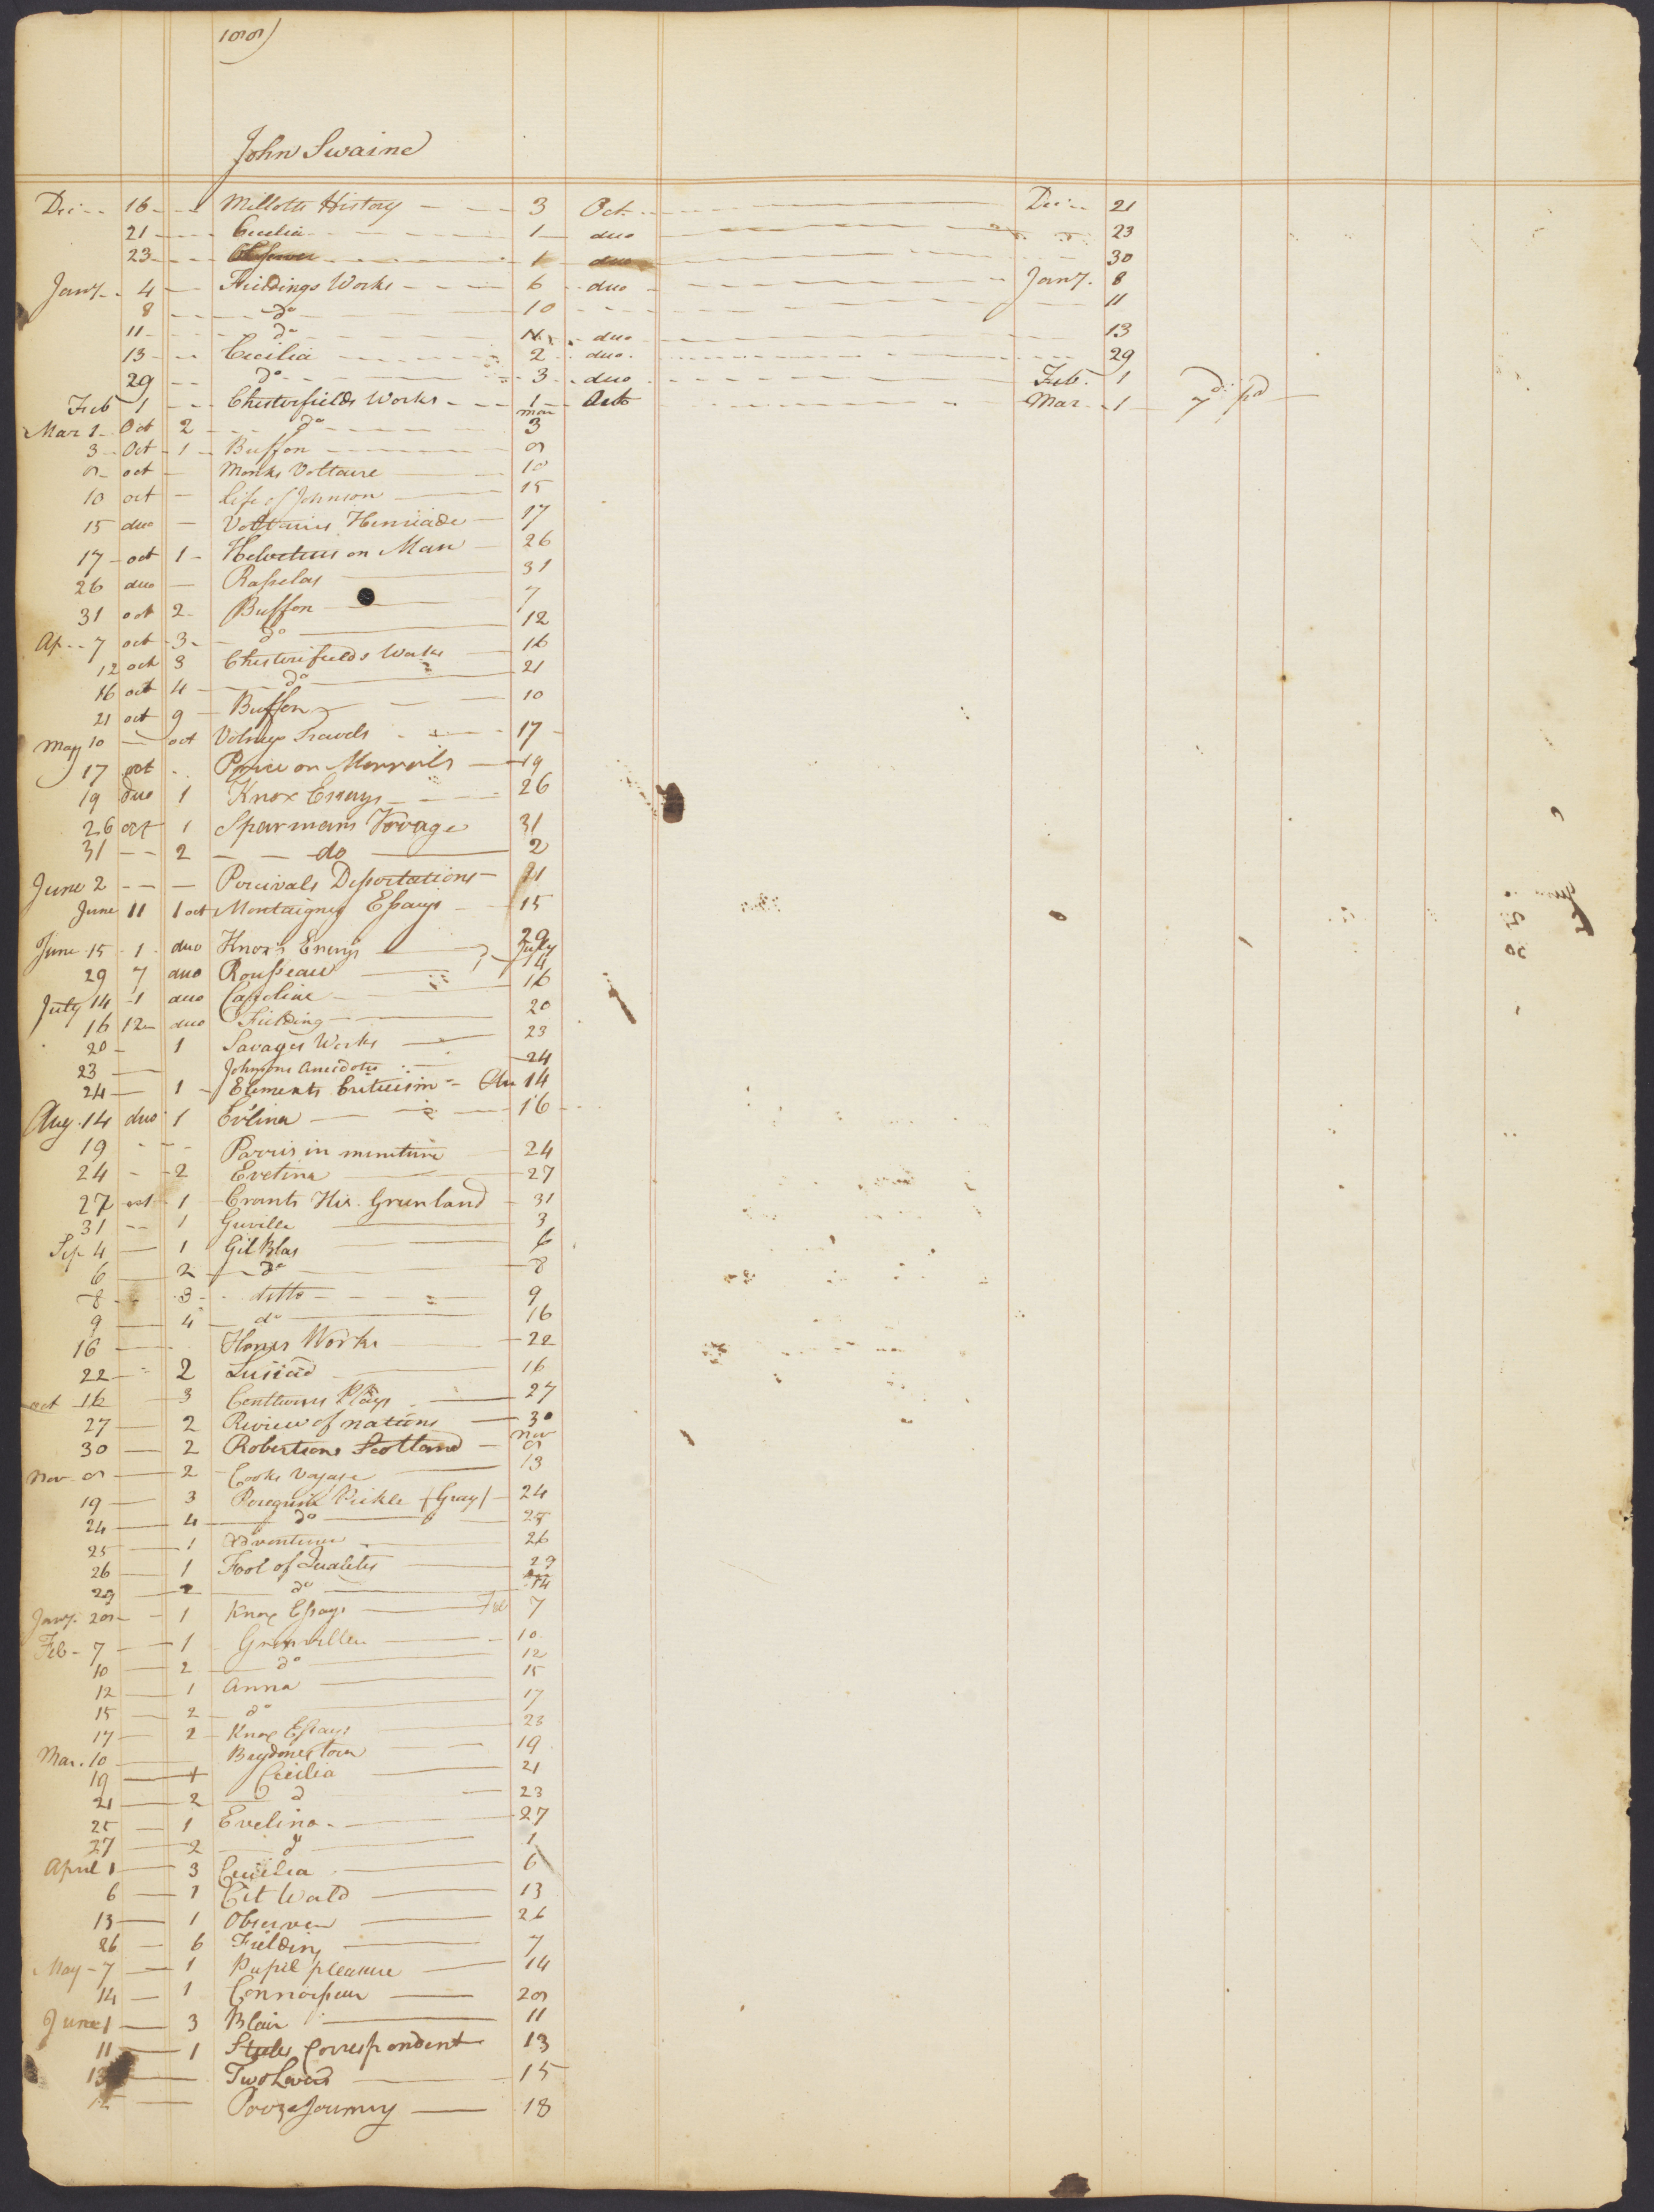 John Swaine
Dec 16 Millotts History 3 Oct. Dec 21
21 Cecelia 1 duo 23
23 Observer 1 duo 30
Jany. 4 Fieldings Works 6 duo Jany. 8
8 do 10 11
11 do duo 13
13 Cecilia 2 duo 29
29 do 3 duo Feb. 1
Feb 1 Chesterfields Works 1 Oct Mar 1 pd
Mar 1 Oct 2 do mar 3
3 Oct 1 Buffon 9
9 oct Monks Voltaire 10
10 oct Life of Johnson 15
15 duo Voltaires Henriade 17
17 oct 1 Helvetius on Man 26
26 duo Rasselas 31
31 oct 2 Buffon 7
Ap 7 oct 3 do 12
12 oct 3 Chesterfields Works 16
16 oct 4 do 21
21 oct 9 Buffon 10
May 10 oct Volneys Travels 17
17 oct Price on Morrals 19
19 duo 1 Knox Essays 26
26 oct 1 Sparmans Voyage 31
31 2 do 2
June 2 Percivals Desportations 11
June 11 1 oct Montaignes Essays 15
June 15 1 duo Knox's Essays 29
29 7 duo Rousseau July 14
July 14 1 duo Caroline 16
16 12 duo Fielding 20
20 1 Savages Works 23
23 Johnsons Anecdotes 24
24 1 Elements Criticism Au 14
Aug. 14 duo 1 Evlina 16
19 Parris in minature 24
24 2 Evelina 27
27 oct 1 Crants His. Greenland 31
31 1 Guville 3
Sep 4 1 Gil Blas 6
6 2 do 8
8 3 ditto 9
9 4 do 16
16 Works 22
22 2 Lusiad 16
oct 16 3 Centlivers Plays 27
27 2 Review of nations 30
30 2 Robertsons Scotland Nov 9
Nov 9 2 Cooks Voyage 13
19 3 Peregrine Pickle (Gray) 24
24 4 do 25
25 1 Adventurer 26
26 1 Fool of Quality 29
29 2 do 14
Jany. 29 1 Knox Essays Feb 7
Feb 7 1 10
10 2 do 12
12 1 Anna 15
15 2 do 17
17 2 Knox Essays 23
Mar. 10 Brydones tour 19
19 1 Cecilia 21
21 2 do 23
25 1 Evelina 27
27 2 do 1
April 1 3 Cecilia 6
6 1 Cit World 13
13 1 Observer 26
26 6 Fielding 7
May 7 1 Pupil pleasure 14
14 1 Connoisseur 29
June 1 3 Blair 11
11 1 Steeles Correspondent 13
13 15
15 Journey 18